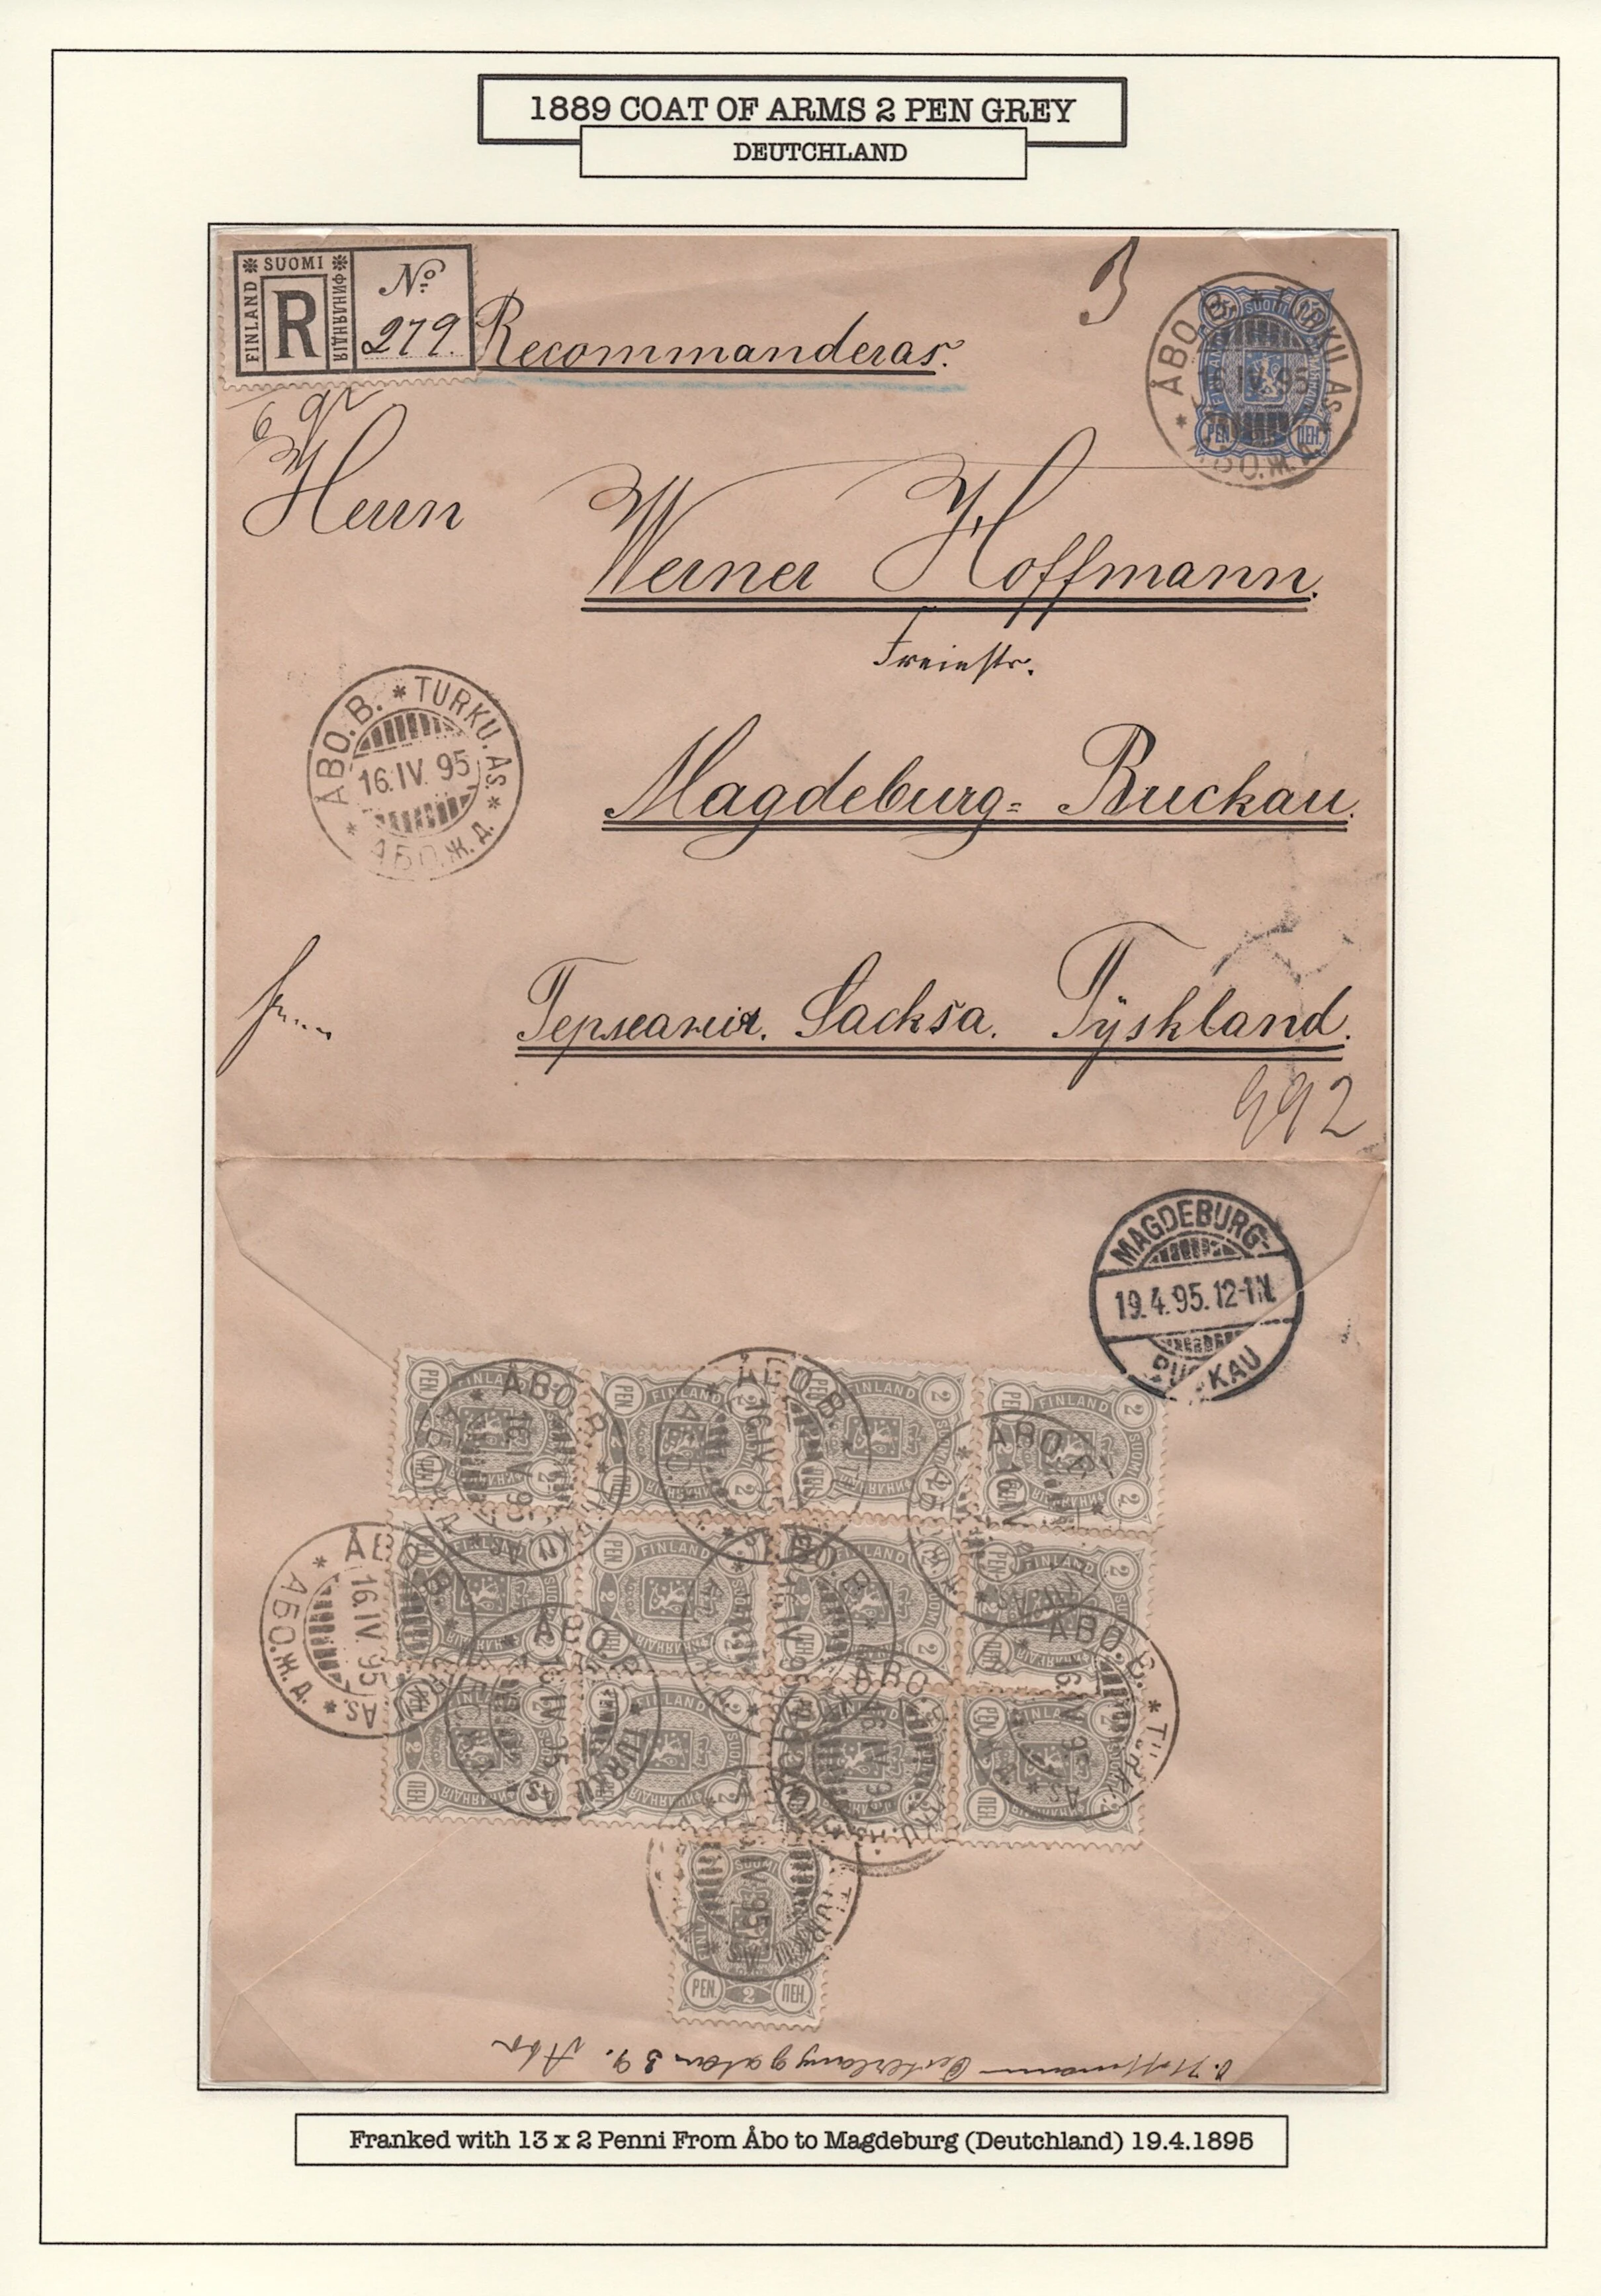 1889 COAT OF ARMS 2 PEN GREY
DEUTCHLAND
SUOMI
FINLAND
R
ФИНЛЯНДІЯ
No
279.
Recommanderas.
3
ÅBO. B. * TURKU. AS. * АБО. Ж. Д. *
IV. 95
SUOMI
25
PEN.
ПЕН.
Herrn
Werner Hoffmann.
Freiestr.
ÅBO. B. * TURKU. AS. * АБО. Ж. Д. *
16. IV. 95
Magdeburg= Buckau.
Германия. Sacksa. Tÿskland.
992
MAGDEBURG-
19.4.95.12-1N.
BUCKAU
PEN FINLAND 2
ÅBO. B.
16. IV. 95
ÅBO. B. * TURKU. AS. * АБО. Ж. Д. *
16. IV. 95
SUOMI
PEN. 2 ПЕН.
Hoffmann Österlånggatan 39. Åbo
Franked with 13 x 2 Penni From Åbo to Magdeburg (Deutchland) 19.4.1895